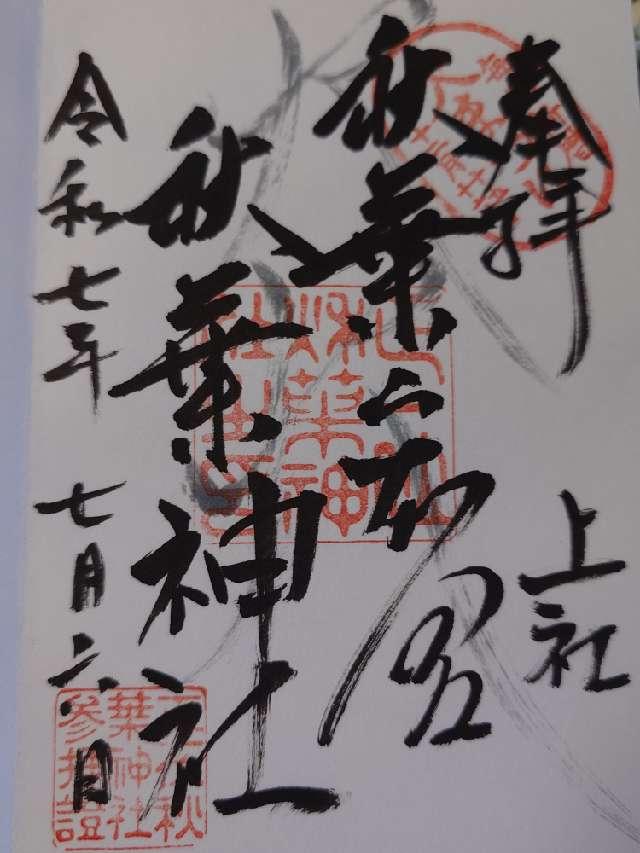 奉拝
上社
秋葉山本宮
秋葉神社
令和七年 七月六日
秋葉神
社之印
葉神社
参拝證